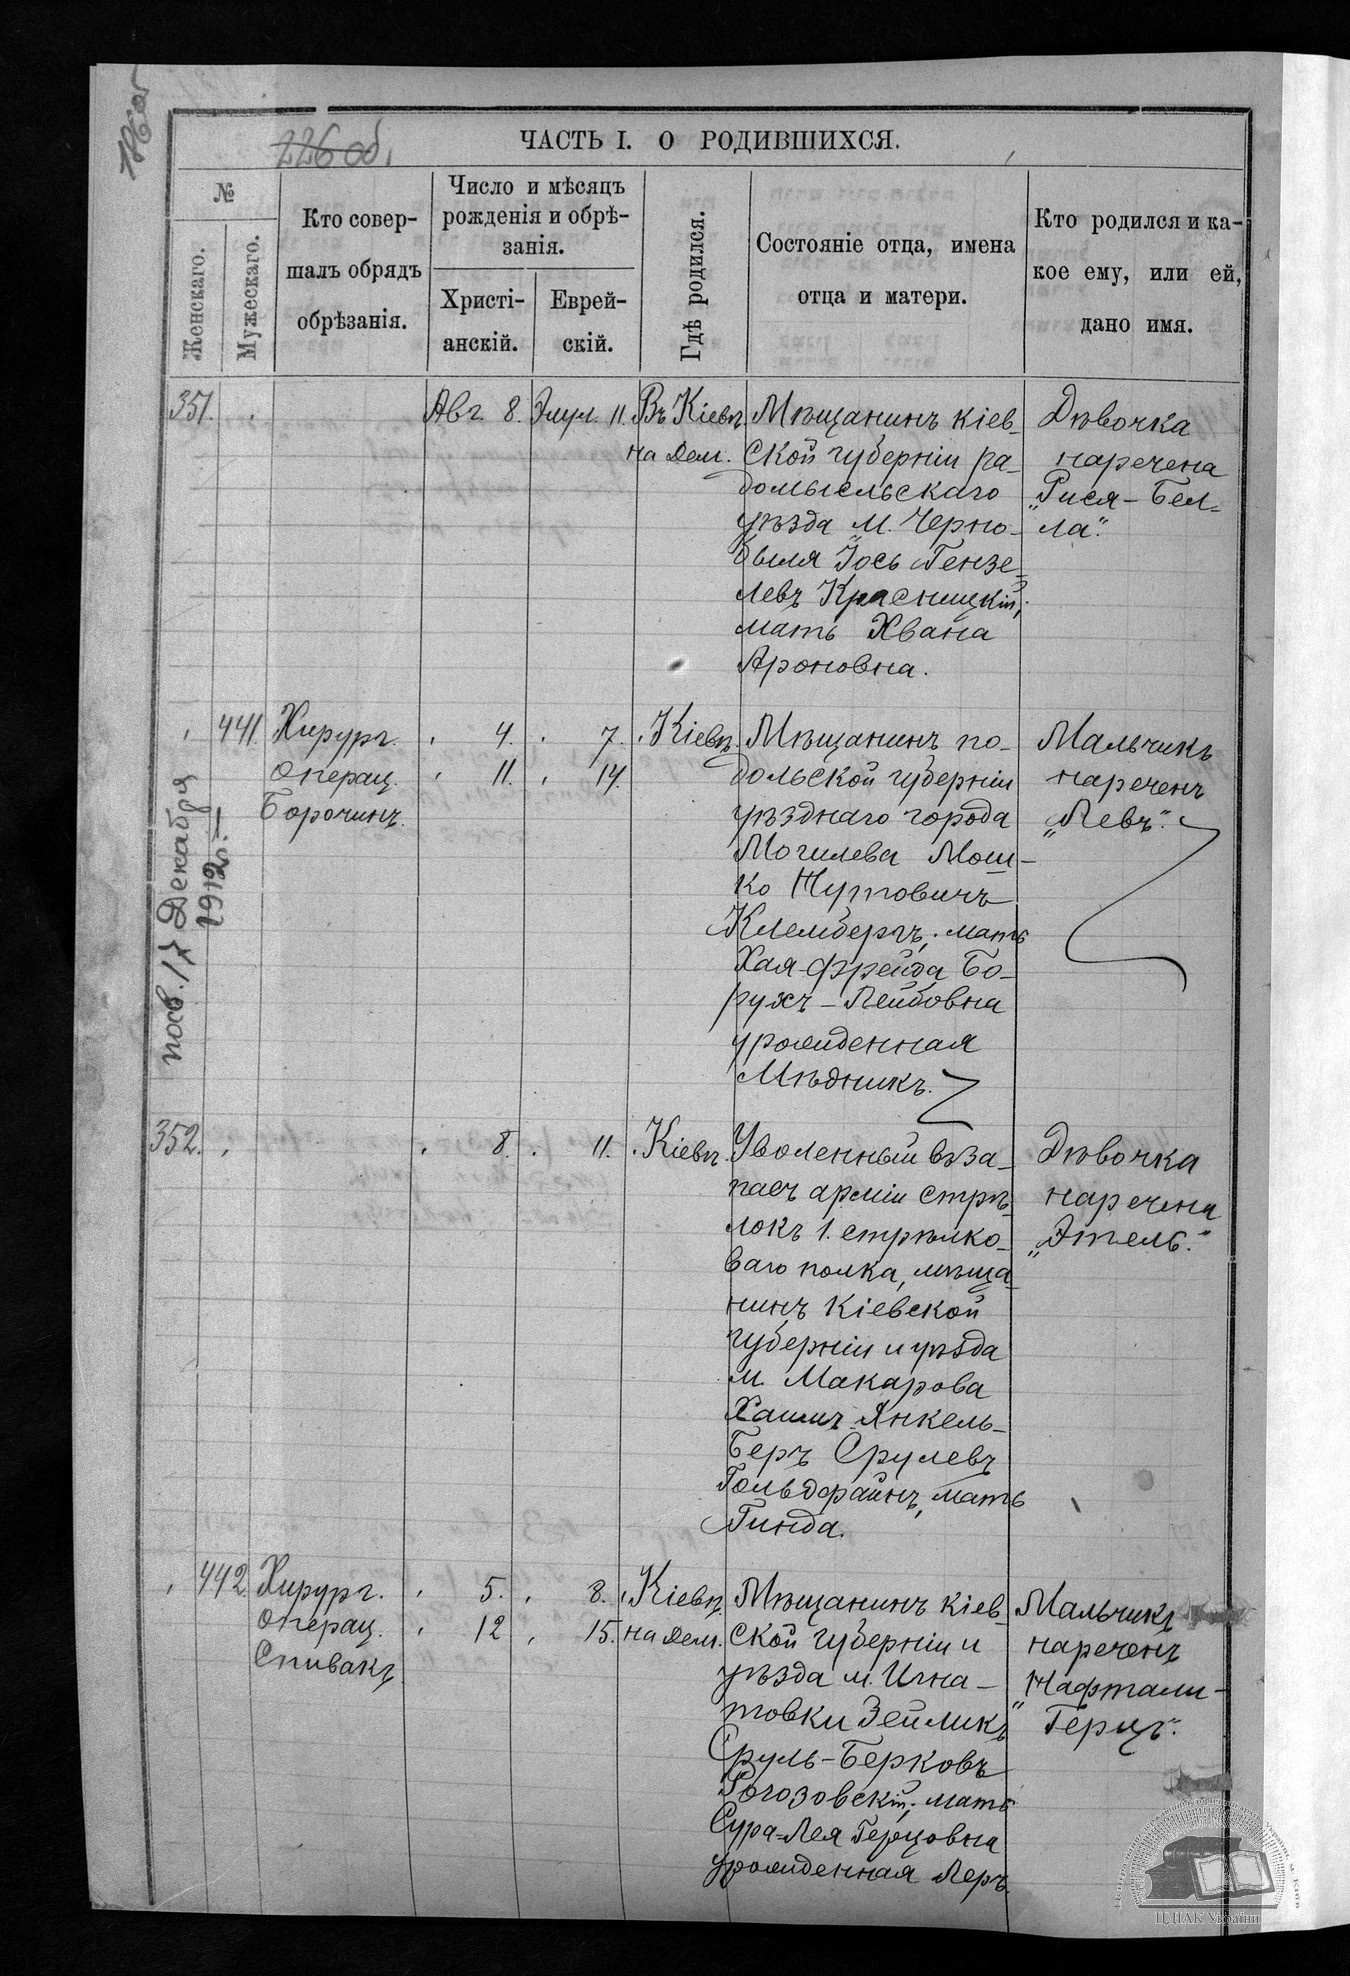 176 об
226 об.
ЧАСТЬ I. О РОДИВШИХСЯ.
№
Женскаго.
Мужескаго.
Кто совер-
шалъ обрядъ
обрѣзанія.
Число и мѣсяцъ
рожденія и обрѣ-
занія.
Христі-
анскій.
Еврей-
скій.
Гдѣ родился.
Состояніе отца, имена
отца и матери.
Кто родился и ка-
кое ему, или ей,
дано имя.
351.
Авг. 8.
Элул. 11.
Въ Кіевѣ
на Дем.
Мѣщанинъ кіев-
ской губерніи ра-
домысльскаго
уѣзда м. Черно-
быля Іось Гензе-
левъ Красницкій,
мать Хвана
Ароновна.
Дѣвочка
наречена
„Рися-Бел-
ла".
441.
Хирург.
операц.
Борочинъ.
4.
11.
7.
14.
Кіевѣ.
Мѣщанинъ по-
дольской губерніи
уѣзднаго города
Могилева Мош-
ко Нутовичъ
Клембергъ; мать
Хая-Фрейда Бо-
рухъ-Лейбовна
урожденная
Мѣдникъ.
Мальчикъ
нареченъ
„Левъ".
посв. 17 Декабря
1912 г.
352.
8.
11.
Кіевѣ.
Уволенный въ за-
пасъ арміи стрѣ-
локъ 1. стрѣлко-
ваго полка, мѣща-
нинъ Кіевской
губерніи и уѣзда
м. Макарова
Хаимъ-Янкель-
Беръ Срулевъ
Гольдфайнъ, мать
Гинда.
Дѣвочка
наречена
„Этель."
442.
Хирург.
операц.
Спивакъ
5.
12
8.
15.
Кіевѣ
на Дем.
Мѣщанинъ кіев-
ской губерніи и
уѣзда м. Игна-
товки Зейликъ
Сруль-Берковъ
Рогозовскій; мать
Сура-Лея Герцовна
урожденная Леръ.
Мальчикъ
нареченъ
„Нафтали-
Герцъ".
ЦДІАК України